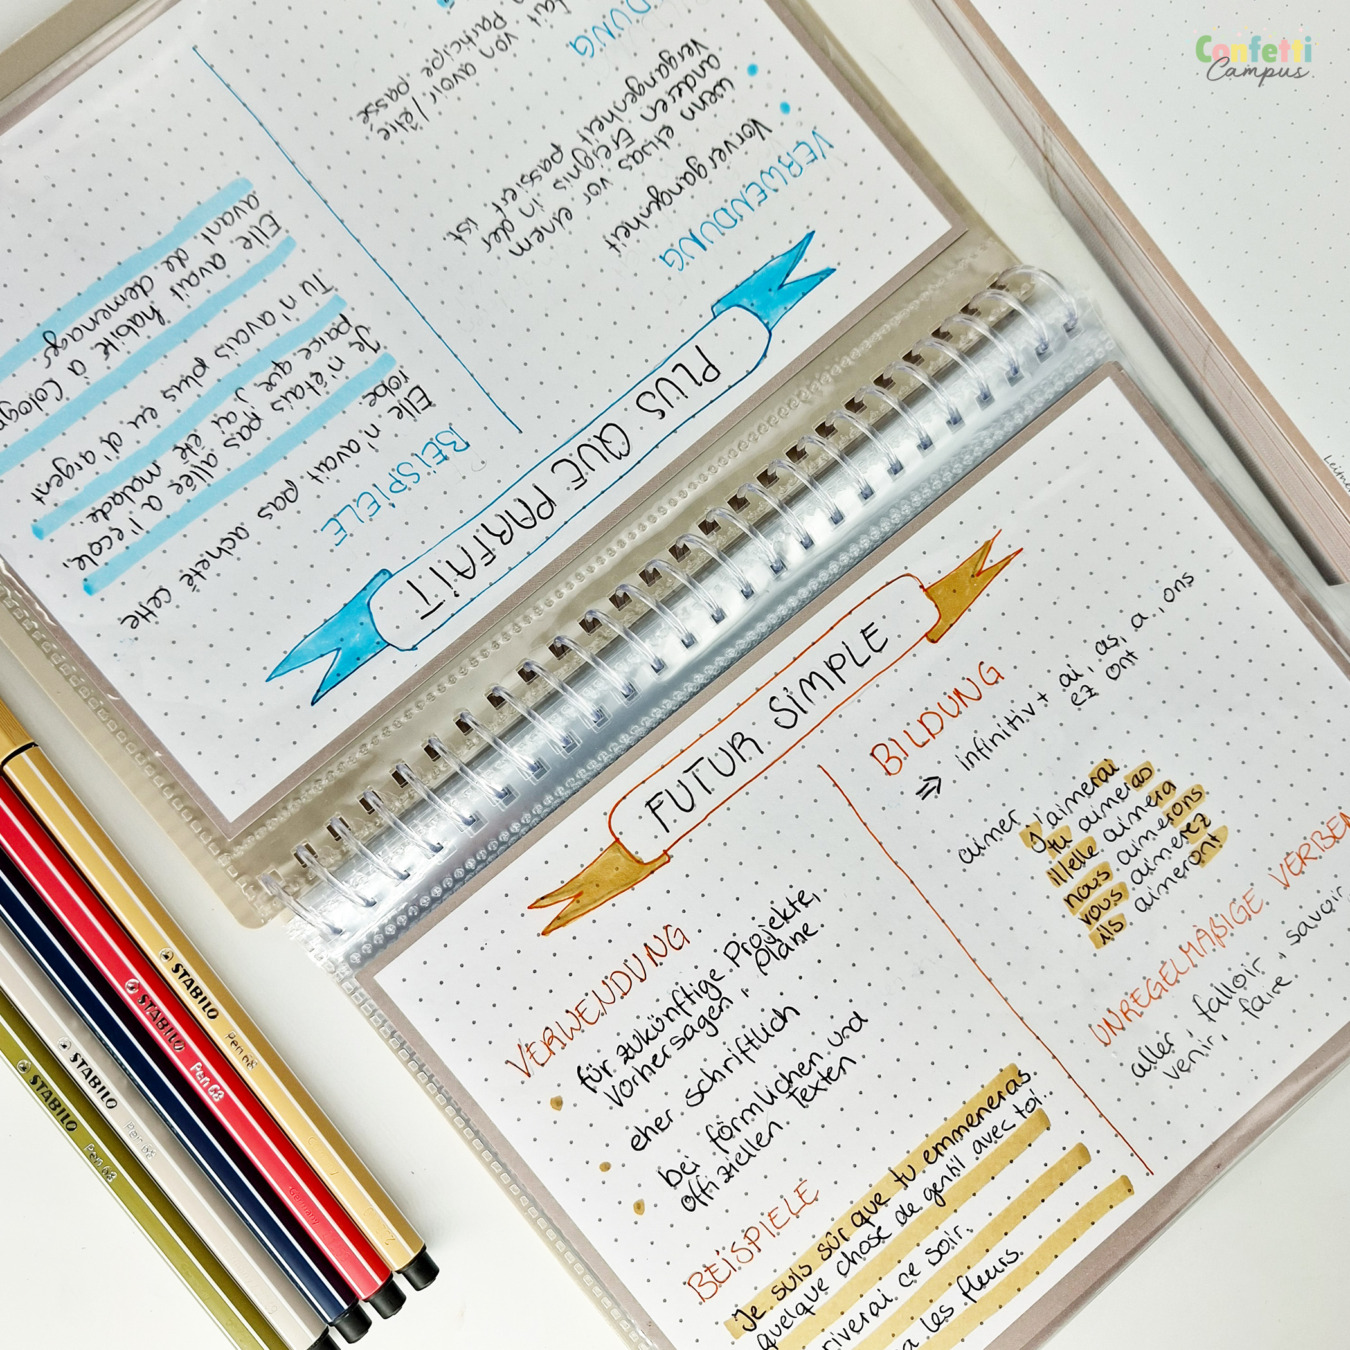 Confetti
Campus
PLUS QUE PARFAIT
VERWENDUNG
Vorvergangenheit
wenn etwas vor einem
anderen Ereignis in der
Vergangenheit passiert ist.
DUNG
von avoir / être
Participe passé
BEISPIELE
Elle n'avait pas acheté cette
robe
Je n'étais pas allée à l'ecole,
parce que j'ai été malade.
Tu n'avais plus eu d'argent
Elle avait habité à
avant de demenager
FUTUR SIMPLE
VERWENDUNG
für zukünftige Projekte,
Vorhersagen, pläne.
eher schriftlich
bei förmlichen und
offiziellen Texten
BEISPIELE
Je suis sûr que tu emmeneras
quelque chose de gentil avec toi.
ce soir.
les fleurs.
BILDUNG
⇒ infinitiv + ai, as, a, ons
ez ont
aimer J'aimerai
tu aimeras
il/elle aimera
nous aimerons
vous aimerez
ils aimeront
UNREGELMÄßIGE VERBEN
aller, falloir, savoir,
venir, faire
STABILO Pen 68
STABILO Pen 68
STABILO Pen 68
STABILO Pen 68